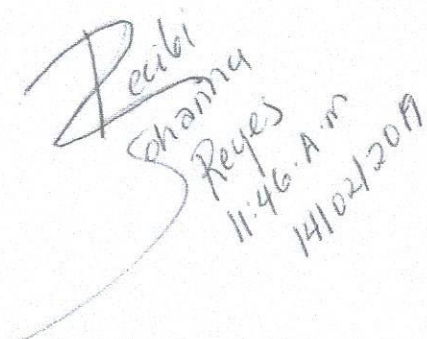 Recibi
Johanna
Reyes
11:46. A.m
14/02/2019